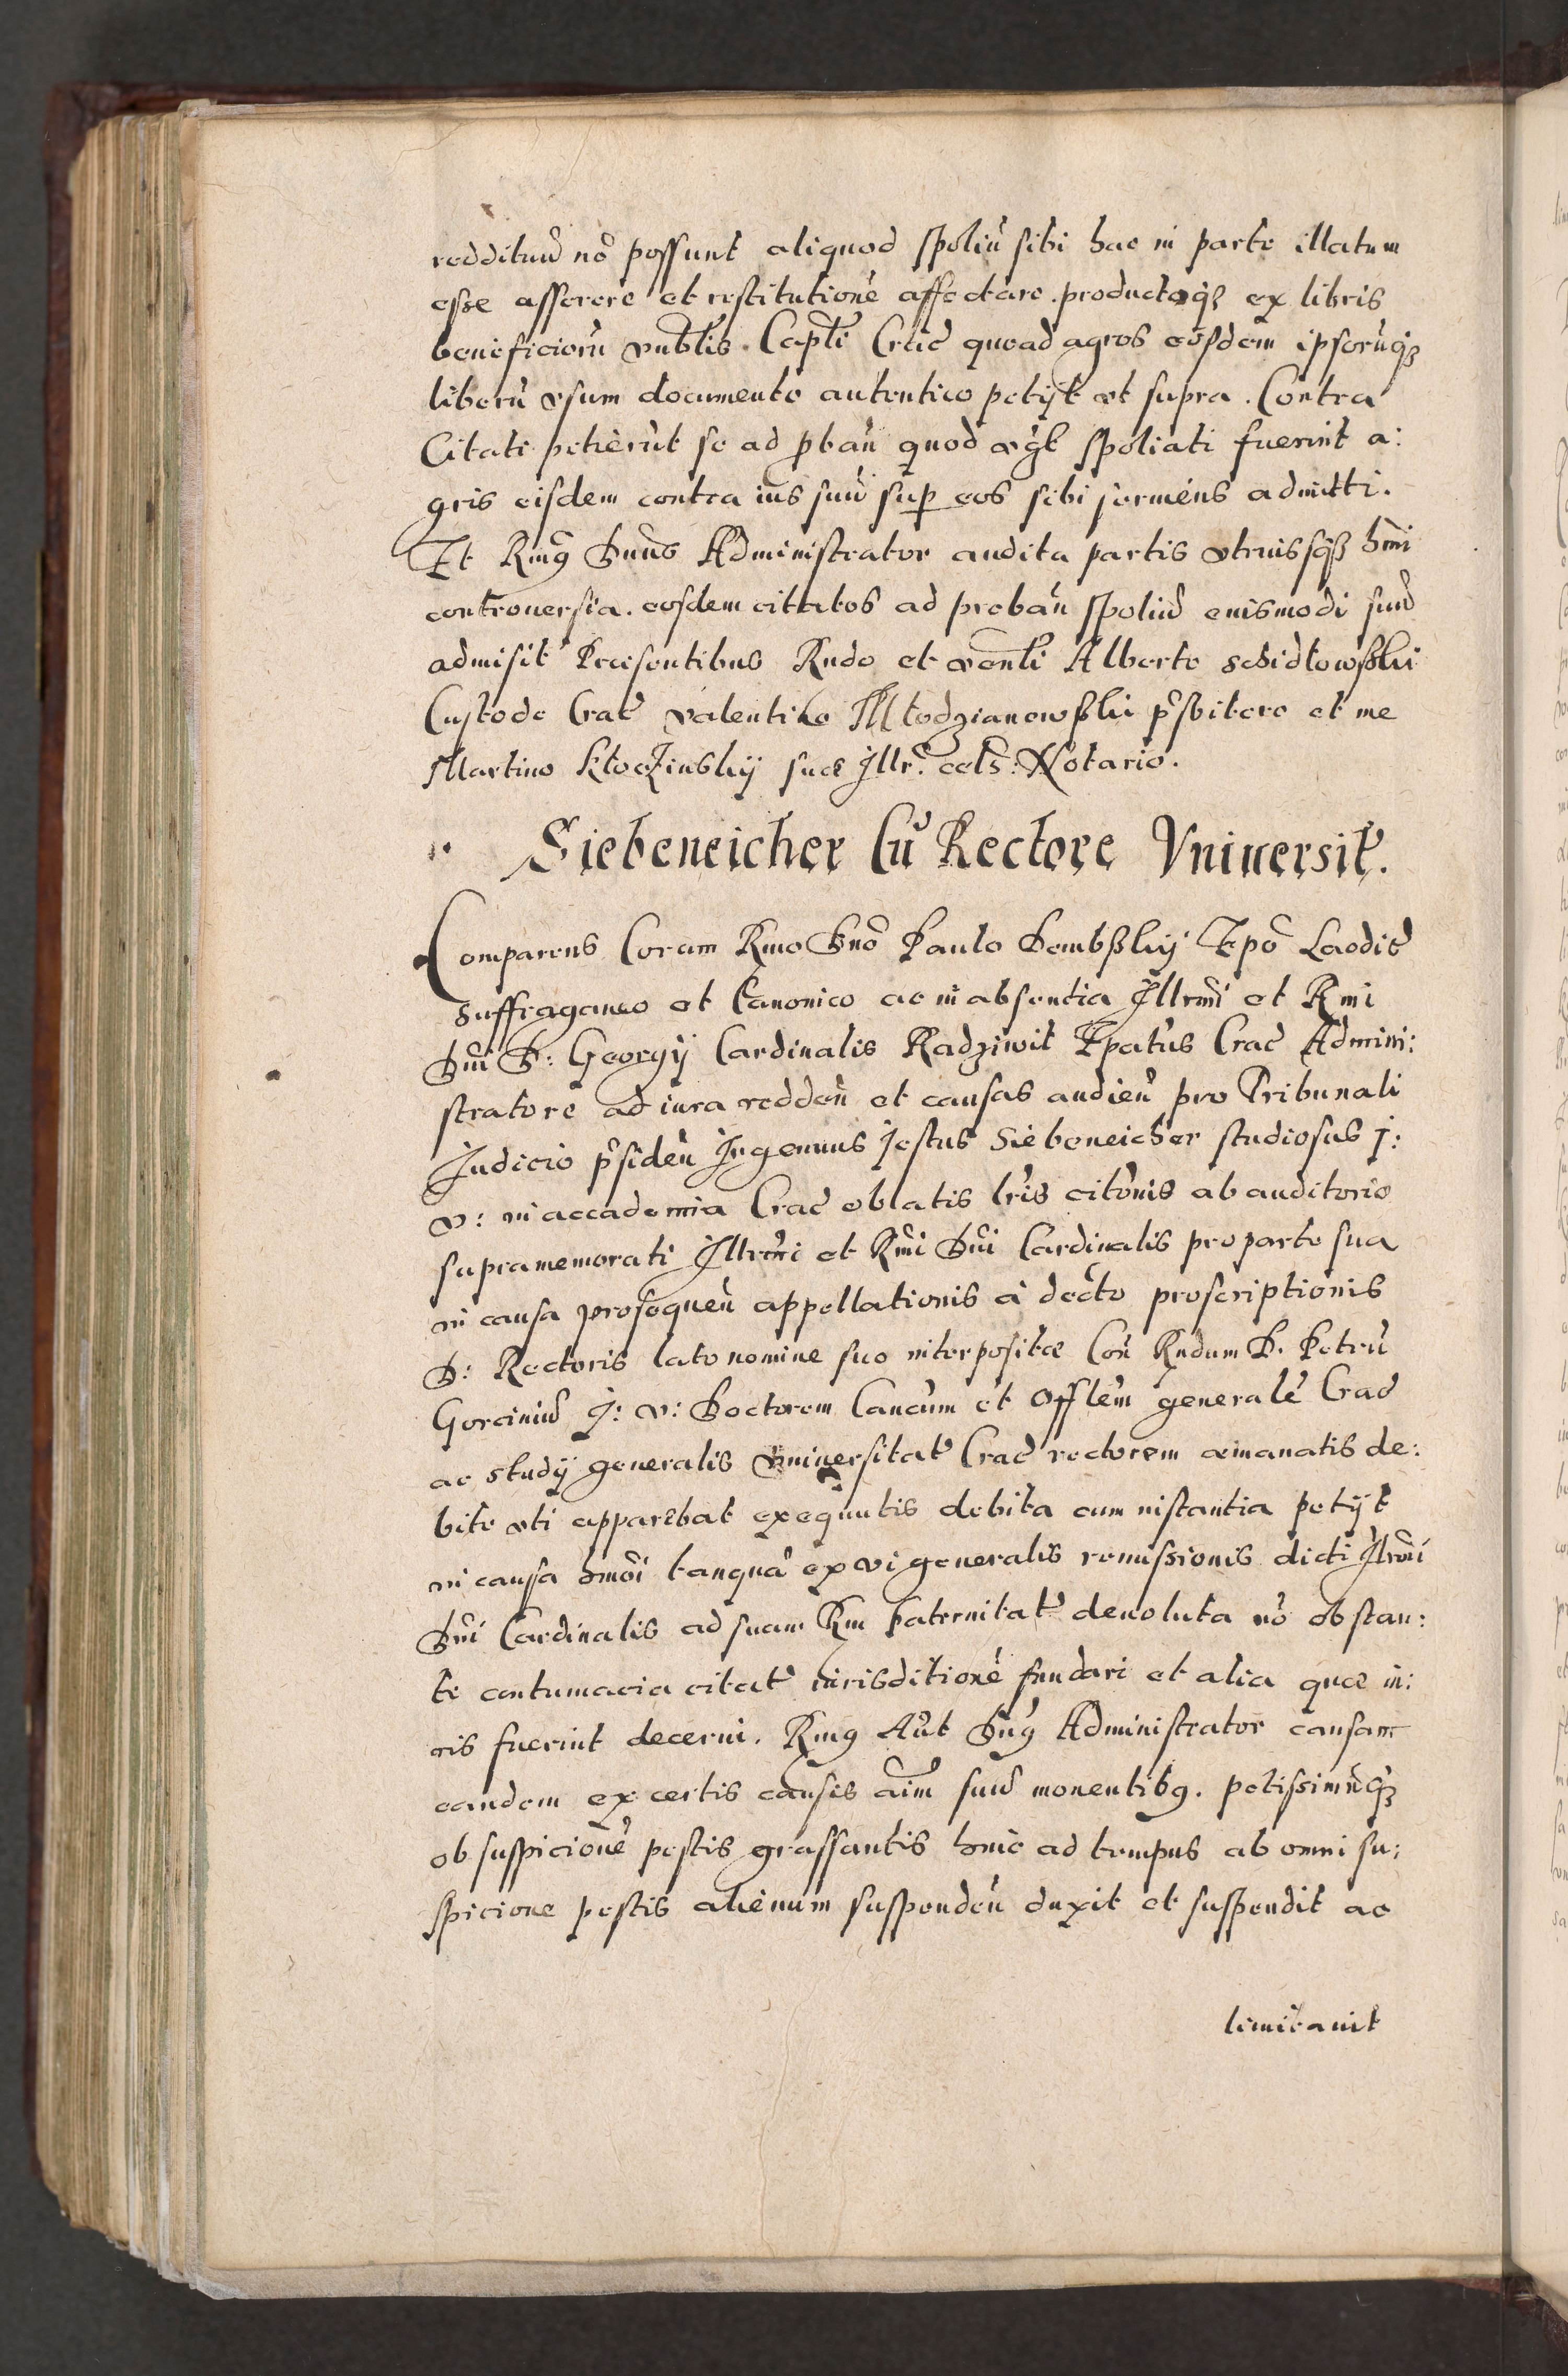 reddituũ nõ possunt aliquod spoliũ sibi hac in parte illatum
esse asserere et restitutionẽ affectare. productoq̃ ex libris
beneficiorũ vnblis. Capłi Crac̃ quoad agros eosdem ipsorũq̃
liberũ vsum documento autentico petijt vt supra. Contra
Citati petierũt se ad ꝓbañ quod spoliati fuerint a:
gris eisdem contra ius suũ suꝑ eos sibi admitti.
Et Rmꝰ Dnũs Administrator audita partis vtriusq̃ hmi
controuersia. eosdem citatos ad probañ spoliũ euismodi suũ
admisit Præsentibus Rndo et venłi Alberto Schidłowßki
Custode Crac̃ Valentino Młodzianowßki p̃sbitero et me
Martino Kłoczinskij suæ Illr̃: cels: Notario.
Siebeneicher Cũ Rectore Vniuersit̃.
Comparens Coram Rmo Dnõ Paulo Dembßkij Epõ Laodic̃
suffraganeo et Canonico ac in absentia Illrmi et Rmi
Dñi D: Georgij Cardinalis Radziwił Epatũs Crac̃ Admini:
stratore ad iura reddeñ et causas audieñ pro Tribunali
Iudicio p̃sideñ Ingenuus Iostus Siebeneicher studiosus J:
V: in accademia Crac̃ oblatis lr̃is citõnis ab auditorio
supramemorati Illrmi et Rmi Dñi Cardinalis pro parte sua
in causa prosequeñ appellationis à decto proscriptionis
D: Rectoris lato nomine suo interpositæ Coñ Rndum D. Petrũ
Gorciniũ J: V: Doctorem Cancũm et Offłem generalẽ Crac̃
ac studij generalis Vniuersitat̃ Crac̃ rectorem æmanatis de:
bite vti apparebat exequutis debita cum instantia petijt
in causa hmoi tanquã ex vi generalis remissionis dicti Ilrmi
Dñi Cardinalis ad suam Rm Paternitat̃ deuoluta nõ obstan:
te contumacia citat̃ iurisditionẽ fundari et alia quæ iu:
ris fuerint decerni. Rmꝰ Aũt Dñꝰ Administrator causam
eandem ex certis causis aĩm suũ mouentibꝰ. potissimũq̃
ob suspicionẽ pestis grassantis hinc ad tempus ab omni su:
spicione pestis alienum suspendeñ duxit et suspendit ac
limitauit